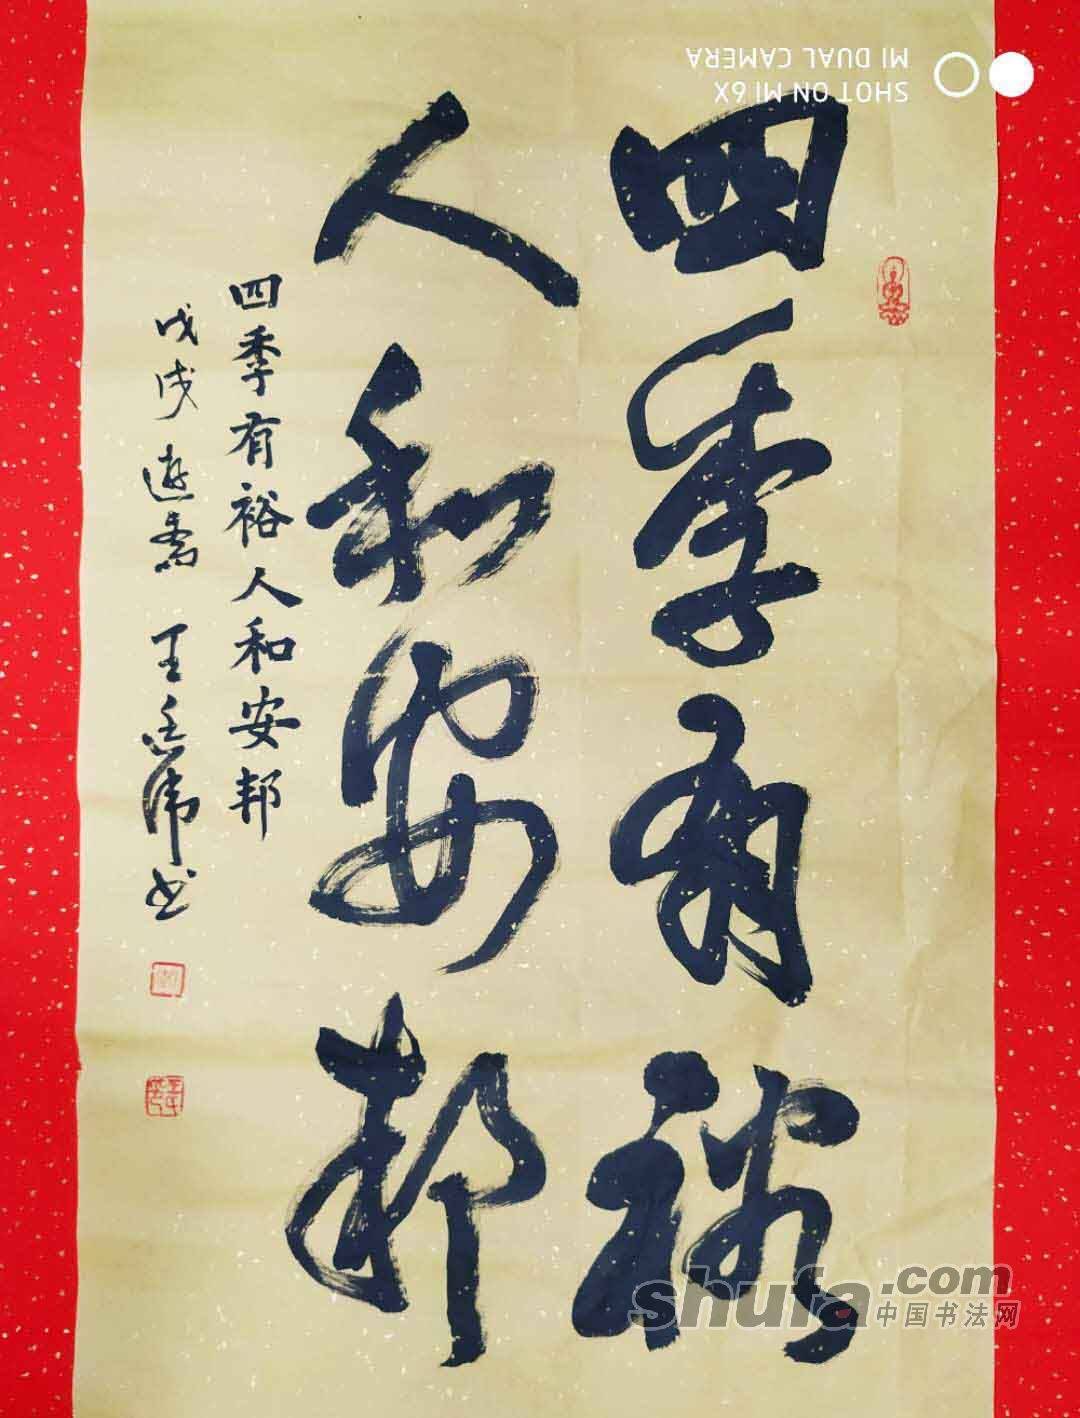 四季有裕
人和安邦
四季有裕人和安邦
戊戌 王 伟书
SHOT ON MI 6X
MI DUAL CAMERA
shufa.com
中国书法网